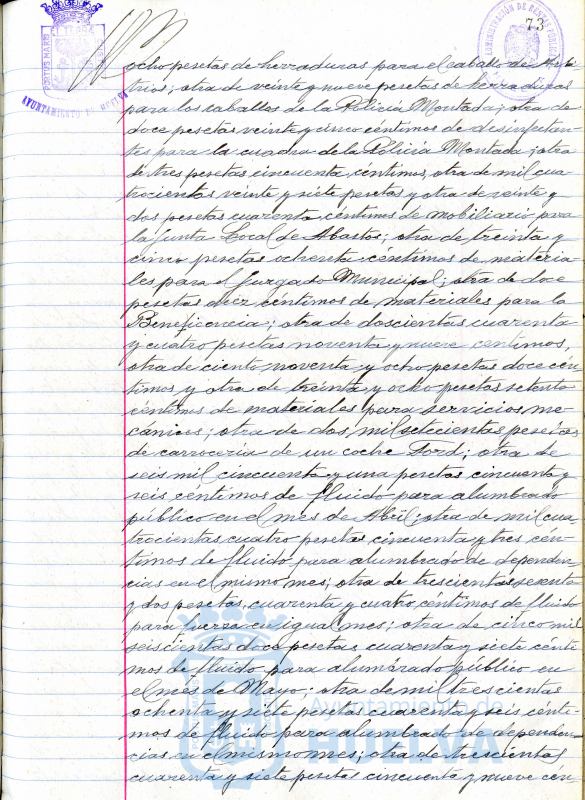 73
PORTUS MARIS
AYUNTAMIENTO DE HUELVA
ADMINISTRACIÓN DE RENTAS PÚBLICAS
ocho pesetas de herraduras para el caballo de Arbi
trios; otra de veinte y nueve pesetas de herraduras
para los caballos de la Policía Montada; otra de
doce pesetas veinte y cinco centimos de desinfectan
tes para la cuadra de la Policía Montada; otra
de tres pesetas cincuenta centimos, otra de mil cua
trocientas veinte y siete pesetas y otra de veinte y
dos pesetas cuarenta céntimos de mobiliario para
la Junta Local de Abastos; otra de treinta y
cinco pesetas ochenta centimos de materia
les para el Juzgado Municipal; otra de doce
pesetas diez centimos de materiales para la
Beneficencia; otra de doscientas cuarenta
y cuatro pesetas noventa y nueve centimos,
otra de ciento noventa y ocho pesetas doce cén
timos y otra de treinta y ocho pesetas setenta
centimos de materiales para servicios me
cánicos; otra de dos mil setecientas pesetas
de carroceria de un coche Ford; otra de
seis mil cincuenta y una pesetas cincuenta y
seis centimos de fluido para alumbrado
público en el mes de Abril; otra de mil cua
trocientas cuatro pesetas cincuenta y tres cén
timos de fluido para alumbrado de dependen
cias en el mismo mes; otra de trescientas sesenta
y dos pesetas cuarenta y cuatro céntimos de fluido
para fuerza en igual mes; otra de cinco mil
seiscientas doce pesetas cuarenta y siete cénti
mos de fluido para alumbrado público en
el mes de Mayo; otra de mil trescientas
ochenta y siete pesetas cuarenta y seis cénti
mos de fluido para alumbrado de dependen
cias en el mismo mes; otra de trescientas
cuarenta y siete pesetas cincuenta y nueve cén
Ayuntamiento de
HUELVA